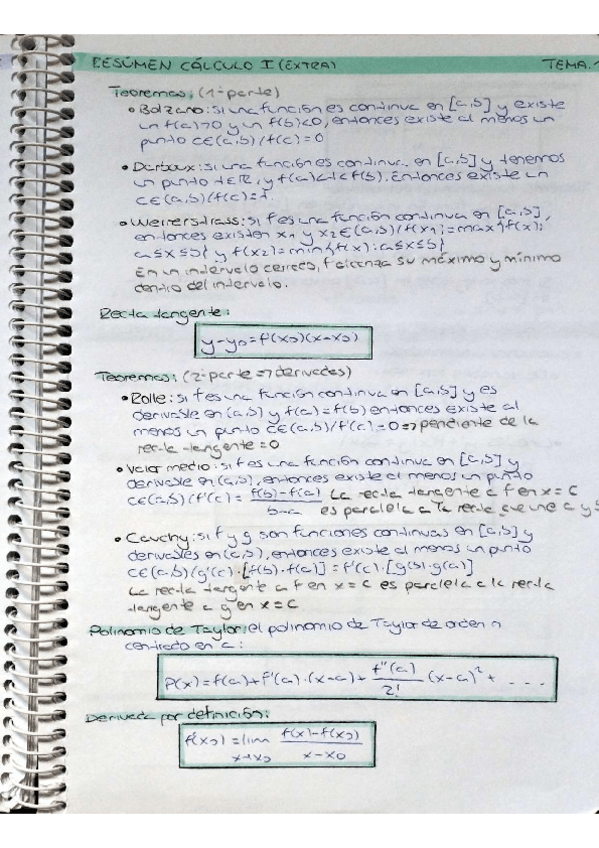 RESÚMEN CÁLCULO I (EXTRA) TEMA.1
Teoremas: (1ª parte)
• Bolzano: si una función es continua en [a,b] y existe
un f(a)>0 y un f(b)<0, entonces existe al menos un
punto c∈(a,b) / f(c)=0
• Darboux: si una función es continua en [a,b] y tenemos
un punto t∈ℝ, y f(a)<t<f(b). Entonces existe un
c∈(a,b)/f(c)=t.
• Weierstrass: si f es una función continua en [a,b],
entonces existen x₁ y x₂∈(a,b)/f(x₁)=max{f(x);
a≤x≤b} y f(x₂)=min{f(x):a≤x≤b}
En un intervalo cerrado, f alcanza su máximo y mínimo
dentro del intervalo.
Recta tangente:
y-y₀=f'(x₀)(x-x₀)
Teoremas: (2ª parte => derivadas)
• Rolle: si f es una función continua en [a,b] y es
derivable en (a,b) y f(a)=f(b) entonces existe al
menos un punto c∈(a,b)/f'(c)=0 => pendiente de la
recta tangente=0
• Valor medio: si f es una función continua en [a,b] y
derivable en (a,b), entonces existe al menos un punto
c∈(a,b)/f'(c)= f(b)-f(a) / b-a La recta tangente a f en x=c
es paralela a la recta que une a y b
• Cauchy: si f y g son funciones continuas en [a,b] y
derivables en (a,b), entonces existe al menos un punto
c∈(a,b)/g'(c)·[f(b)-f(a)]=f'(c)·[g(b)-g(a)]
La recta tangente a f en x=c es paralela a la recta
tangente a g en x=c
Polinomio de Taylor: el polinomio de Taylor de orden n
centrado en a:
P(x)=f(a)+f'(a)·(x-a)+ f''(a)/2! (x-a)²+ ...
Derivada por definición:
f'(x₀)=lim x→x₀ f(x)-f(x₀) / x-x₀